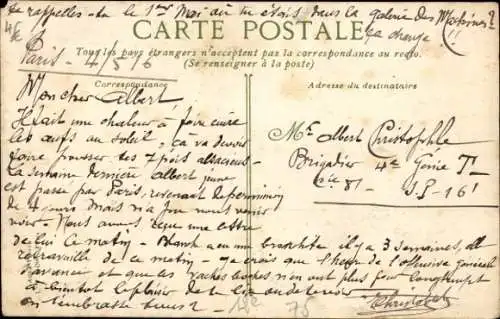 te rappelles-tu le 1er Mai où tu étais dans la galerie des Machines?
ça change!!
CARTE POSTALE
Tous les pays étrangers n'acceptent pas la correspondance au recto.
(Se renseigner à la poste)
Paris - 4/5/16
Correspondance
Mon cher Albert,
Il fait une chaleur à faire cuire
les œufs au soleil, ça va devoir
faire pousser les 7 pois
La semaine dernière Albert jeune
est passé par Paris, revenant de permission
de 4 jours mais n'a pu nous venir
voir - Nous avons reçu une lettre
de lui ce matin - a eu une bronchite il y a 3 semaines, elle
retravaille de ce matin - Je crois que l'heure de l'offensive générale
avance et que les vaches boches n'en ont plus pour longtemps
à bientôt le plaisir de te lire ou de te revoir
on t'embrasse tous 2
Christophle
Adresse du destinataire
Mr Albert Christophle
Brigadier 4e Génie
Cie 8/
S.P. 16
75